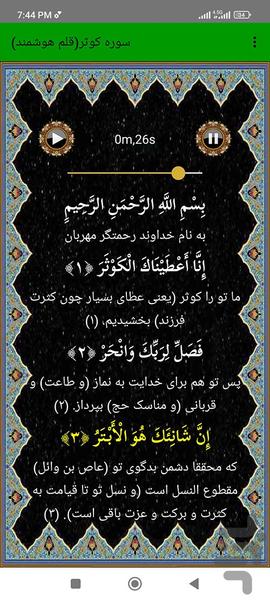 7:44 PM
سوره کوثر(قلم هوشمند)
0m,26s
بِسْمِ اللَّهِ الرَّحْمَنِ الرَّحِيمِ
به نام خداوند رحمتگر مهربان
إِنَّا أَعْطَيْنَاكَ الْكَوْثَرَ ﴿۱﴾
ما تو را کوثر (یعنی عطای بسیار چون کثرت
فرزند) بخشیدیم. (۱)
فَصَلِّ لِرَبِّكَ وَانْحَرْ ﴿۲﴾
پس تو هم برای خدایت به نماز (و طاعت) و
قربانی (و مناسک حج) بپرداز. (۲)
إِنَّ شَانِئَكَ هُوَ الْأَبْتَرُ ﴿۳﴾
که محققا دشمن بدگوی تو (عاص بن وائل)
مقطوع النسل است (و نسل تو تا قیامت به
کثرت و برکت و عزت باقی است). (۳)